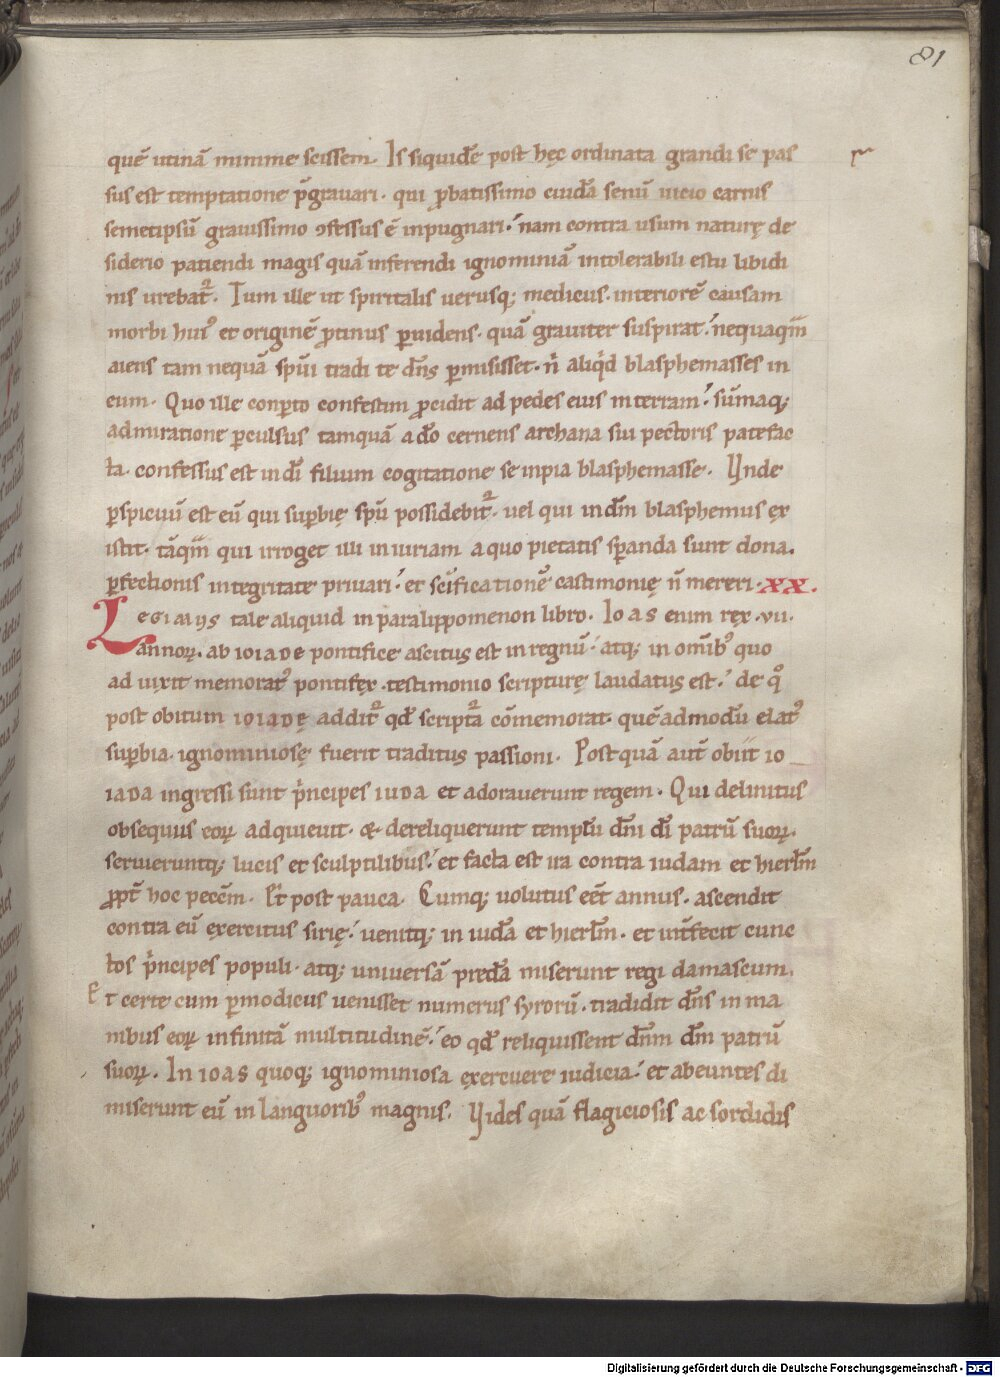 81
quē utinā minime scissem. Is siquidē post hęc ordinata grandi se pas
sus est temptatione p̄grauari. qui ꝓbatissimo cuidā senū uicio carnis
semetipsū grauissimo ꝯfessus ē inpugnari. nam contra usum naturę de
siderio patiendi magis quā inferendi ignominiā intolerabili estu libidi
nis urebat᷑. Tum ille ut spiritalis uerusq; medicus. interiorē causam
morbi huiꝰ et originē ꝓtinus ꝑuidens. quā grauiter suspirat. nequaqm̄
aiens tam nequā spūi tradi te dn̄s ꝑmisisset. n̄ aliqͥd blasphemasses in
eum. Quo ille conꝑto confestim ꝓcidit ad pedes eius in terram. sūmaq;
admiratione ꝑculsus tamquā a dō cernens archana sui pectoris patefac
ta. confessus est in dī filium cogitatione se inpia blasphemasse. Unde
ꝑspicuū est eū qui suꝑbię spū possidebit᷑. uel qui in dm̄ blasphemus ex
istit. tāqm̄ qui irroget illi iniuriam a quo pietatis sꝑanda sunt dona.
ꝑfectionis integritate priuari. et sc̄ificationē castimonię n̄ mereri. xx.
Legimus tale aliquid in paralippomenon libro. Ioas enim rex .vii.
annoꝝ. ab ioiade pontifice ascitus est in regnū. atq; in omībꝰ quo
ad uixit memoratꝰ pontifex. testimonio scripturę laudatus est. de qͦ
post obitum ioiadę addit᷑ qd̄ scripta cōmemorat. quēadmodū elatꝰ
suꝑbia. ignominiosę fuerit traditus passioni. Postquā aut̄ obiit io
iada ingressi sunt p̄ncipes iuda et adorauerunt regem. Qui delinitus
obsequiis eoꝝ adquieuit. & dereliquerunt templū dn̄i dī patrū suoꝝ.
seruieruntq; lucis et sculptilibus. et facta est ira contra iudam et hierl̄m
ꝓpt̄ hoc pecc̄m. Et post pauca. Cumq; uolutus eēt annus. ascendit
contra eū exercitus sirię. uenitq; in iudā et hierl̄m. et int̄fecit cunc
tos p̄ncipes populi. atq; uniuersā predā miserunt regi damascum.
Et certe cum ꝑmodicus uenisset numerus syrorū. tradidit dn̄s in ma
nibus eoꝝ infinitā multitudinē. eo qd̄ reliquissent dn̄m dm̄ patrū
suoꝝ. In ioas quoq; ignominiosa exercuere iudicia. et abeuntes di
miserunt eū in languoribꝰ magnis. Vides quā flagiciosis ac sordidis
Digitalisierung gefördert durch die Deutsche Forschungsgemeinschaft - DFG